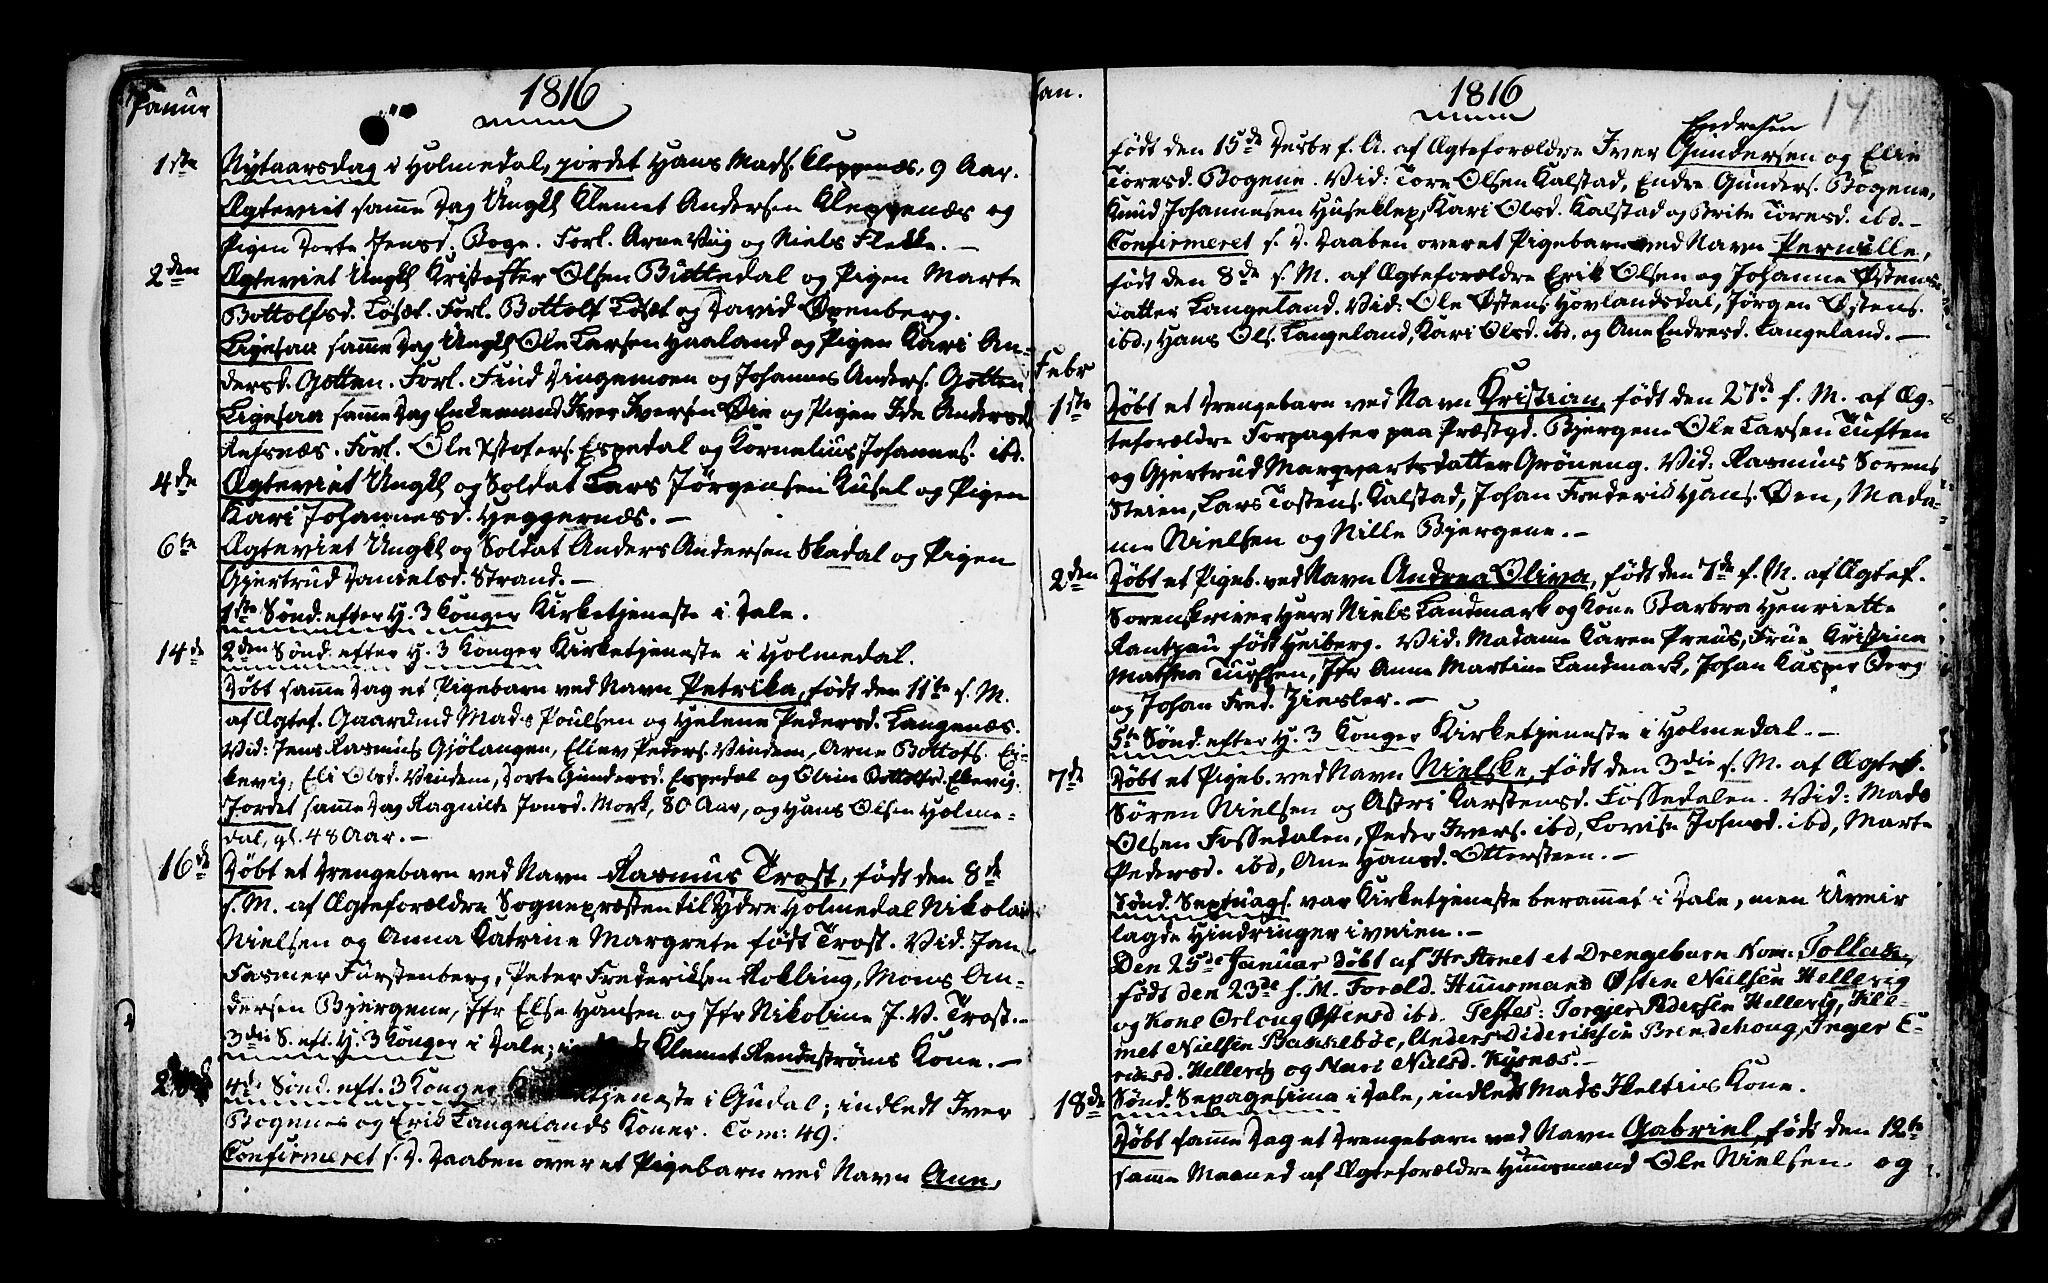 Januar
1816
1ste Nytaarsdag i Holmedal, jordet Hans Mads. Kleppenæs, 9 Aar.
Ægteviet samme Dag Ungkl Klemet Andersen Kleppenæs og
Pigen Dorte Jensd. Boge. Forl. Arne Vaag og Niels Flekke. —
2den Ægteviet Ungkl Kristoffer Olsen Büttedal og Pigen Marte
Bottolfsd. Löset. Forl. Bottolf Löset og David Öxenberg.
Ligesaa samme Dag Ungkl Ole Larsen Haaland og Pigen Kari An-
dersd. Gotten. Forl. Find Vingemoen og Johannes Anders. Gotten
Ligesaa samme Dag Enkemand Iver Iversen Öen og Pigen Ide Andersd.
Refsnæs. Forl. Ole Xstofers. Espedal og Kornelius Johannes. ibd.
4de Ægteviet Ungkl og Soldat Lars Jörgensen Küsel og Pigen
Kari Johannesd. Heggernæs. —
6te Ægteviet Ungkl og Soldat Anders Andersen Skadal og Pigen
Gjertrud Danielsd. Strand. —
1ste Sönd. efter H. 3 Konger Kirketjeneste i Dale.
14de 2den Sönd. efter H. 3 Konger Kirketjeneste i Holmedal.
Döbt samme Dag et Pigebarn ved Navn Petrika, födt den 11te s. M.
af Ægtef. Gaardmd Mads Poulsen og Helene Pedersd. Langenæs.
Vid: Jens Rasmus Gjölangen, Eliev Peders. Vindem, Arne Bottofs. Ei-
kevig, Eli Olsd. Vindem, Dorte Gundersd. Espedal og Olin Bottolfsd. Ekevig.
Jordet samme Dag Ragnilde Jonsd. Mork, 80 Aar, og Hans Olsen Holme-
dal, gl. 48 Aar. —
16de Döbt et Drengebarn ved Navn Rasmus Trost, födt den 8de
s. M. af Ægteforældre Sognepræsten til Ydre Holmedal Nikolai
Nielsen og Anna Katrine Margrete födt Trost. Vid. Jan
Fasmer Fürstenberg, Peter Frederiksen Rokling, Mons An-
dersen Bjergene, Jfr Else Hansen og Jfr Nikoline J. V. Trost. —
3die S. eft. H. 3 Konger i Dale; Klemet Rendeströms Kone. —
4de Sönd. eft. 3 Konger Kirketjeneste i Gudal; indledt Iver
Bogenes og Erik Langelands Koner. Com: 49.
Confirmeret s. D. Daaben over et Pigebarn ved Navn Ane,
Jan.
1816
14
Endresen
födt den 15de Decbr f. A. af Ægteforældre Iver Gundersen og Elie
Toresd. Bogene. Vid: Tore Olsen Kalstad, Endre Gunders. Bogene,
Knud Johannesen Huseklep, Kari Olsd. Kalstad og Brite Toresd. ibd. —
Confirmeret s. D. Daaben over et Pigebarn ved Navn Pernille,
födt den 8de s. M. af Ægteforældre Erik Olsen og Johanne Östens-
datter Langeland. Vid: Ole Östens. Hovlandsdal, Jörgen Östens.
ibd., Hans Ols. Langeland, Kari Olsd. ibd. og Ane Endresd. Langeland. —
Febr
1ste Döbt et Drengebarn ved Navn Kristian, födt den 27de f. M. af Æg-
teforældre Forpagter paa Præstgd. Bjergene Ole Larsen Tuften
og Gjertrud Marqvartsdatter Gröneng. Vid: Rasmus Sörens.
Steien, Lars Tostens. Kalstad, Johan Frederik Hans. Öen, Mada-
me Nielsen og Nille Bjergene. —
2den Döbt et Pigeb. ved Navn Andrea Oliva, födt den 7de f. M. af Ægtef.
Sorenskriver Herr Niels Landmark og Kone Barbra Henriette
Rantzau födt Heiberg. Vid: Madame Karen Preus, Frue Kristine
Mathea Tuchsen, Jfr Anne Martine Landmark, Johan Kasper Berg
og Johan Fred. Ziesler. —
5te Sönd. efter H. 3 Konger Kirketjeneste i Holmedal. —
7de Döbt et Pigeb. ved Navn Nielske, födt den 3die s. M. af Ægtef.
Sören Nielsen og Astri Karstensd. Fossedalen. Vid: Mads
Olsen Fossedalen, Peder Ivers. ibd, Lovise Johnsd. ibd, Marte
Pedersd. ibd, Ane Hansd. Ottersteen. —
Sönd. Septuags. var Kirketjeneste berammet i Dale, men Uveir
lagde Hindringer i veien. —
Den 25de Januar döbt af Hr Aonet et Drengebarn Nom: Tollak,
födt den 23de s. M. Foræld. Huusmand Östen Nielsen Hellevig
og Kone Orloug Östensd ibd. Testes: Torgjer Pedersen Hellevig, Hel-
met Nielsen Bakkeböe, Anders Dideriksen Brendehoug, Inger E-
riksd. Hellevig og Mari Nielsd. Kysnæs. —
18de Sönd. Sexagesima i Dale, indledt Mads Skeltvis Kone.
Döbt samme Dag et Drengebarn ved Navn Gabriel, födt den 12te
samme Maaned af Ægteforældre Huusmand Ole Nielsen og